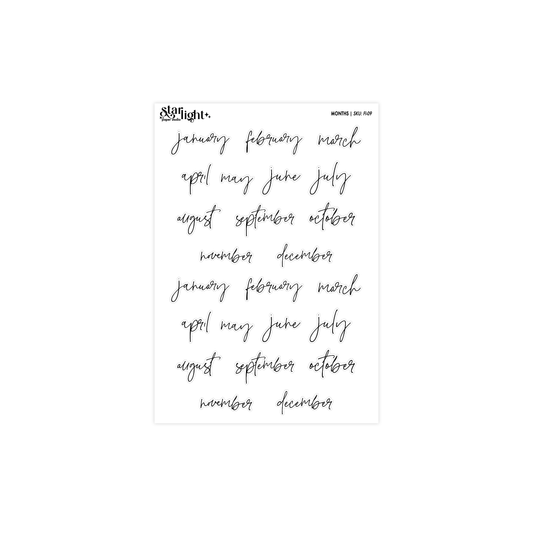 star
light
paper studio
MONTHS | SKU: F1-09
january february march
april may june july
august september october
november december
january february march
april may june july
august september october
november december